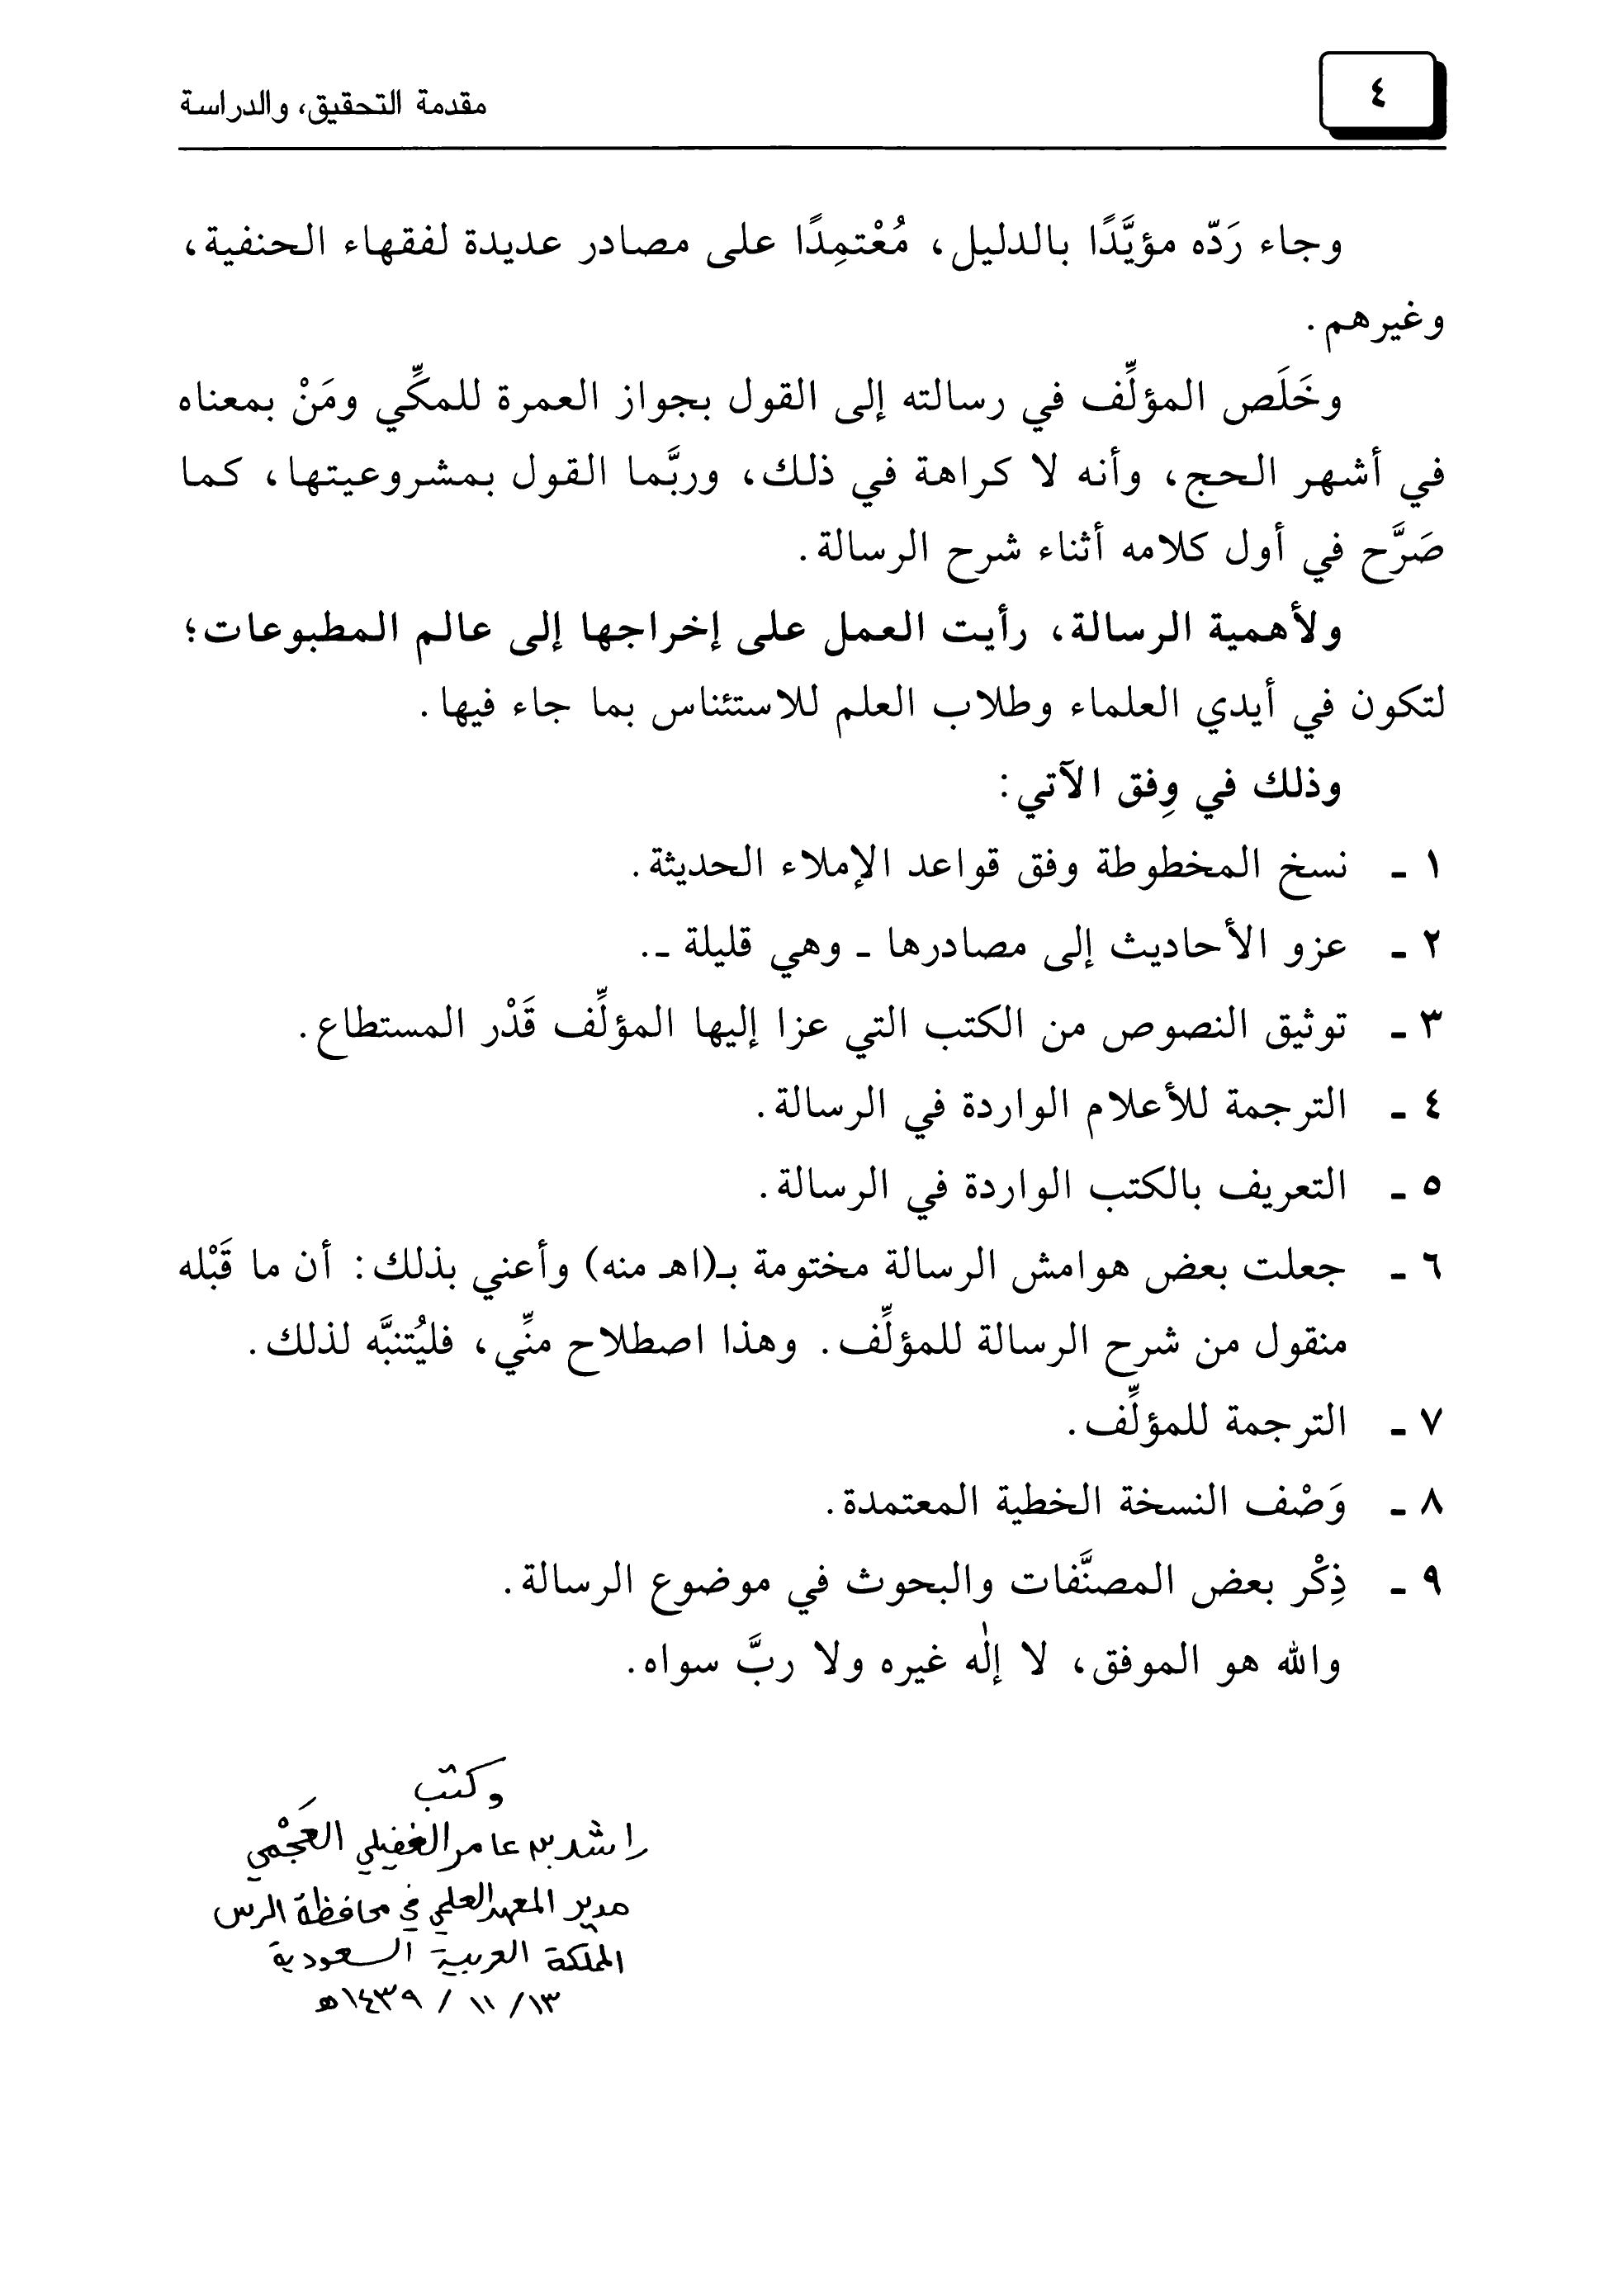 ٤
مقدمة التحقيق، والدراسة
وجاء رَدّه مؤيَّدًا بالدليل، مُعْتمِدًا على مصادر عديدة لفقهاء الحنفية،
وغيرهم.
وخَلَص المؤلِّف في رسالته إلى القول بجواز العمرة للمكِّي ومَنْ بمعناه
في أشهر الحج، وأنه لا كراهة في ذلك، وربَّما القول بمشروعيتها، كما
صَرَّح في أول كلامه أثناء شرح الرسالة.
ولأهمية الرسالة، رأيت العمل على إخراجها إلى عالم المطبوعات؛
لتكون في أيدي العلماء وطلاب العلم للاستئناس بما جاء فيها.
وذلك في وِفق الآتي:
١ ـ نسخ المخطوطة وفق قواعد الإملاء الحديثة.
٢ ـ عزو الأحاديث إلى مصادرها ـ وهي قليلة ـ.
٣ ـ توثيق النصوص من الكتب التي عزا إليها المؤلِّف قَدْر المستطاع.
٤ ـ الترجمة للأعلام الواردة في الرسالة.
٥ ـ التعريف بالكتب الواردة في الرسالة.
٦ ـ جعلت بعض هوامش الرسالة مختومة بـ(اهـ منه) وأعني بذلك: أن ما قَبْله
منقول من شرح الرسالة للمؤلِّف. وهذا اصطلاح منِّي، فليُتنبَّه لذلك.
٧ ـ الترجمة للمؤلِّف.
٨ ـ وَصْف النسخة الخطية المعتمدة.
٩ ـ ذِكْر بعض المصنَّفات والبحوث في موضوع الرسالة.
والله هو الموفق، لا إلٰه غيره ولا ربَّ سواه.
وكتب
راشد بن عامر الغفيلي العَجْمي
مدير المعهد العلمي في محافظة الرس
المملكة العربية السعودية
١٣/ ١١ / ١٤٣٩هـ